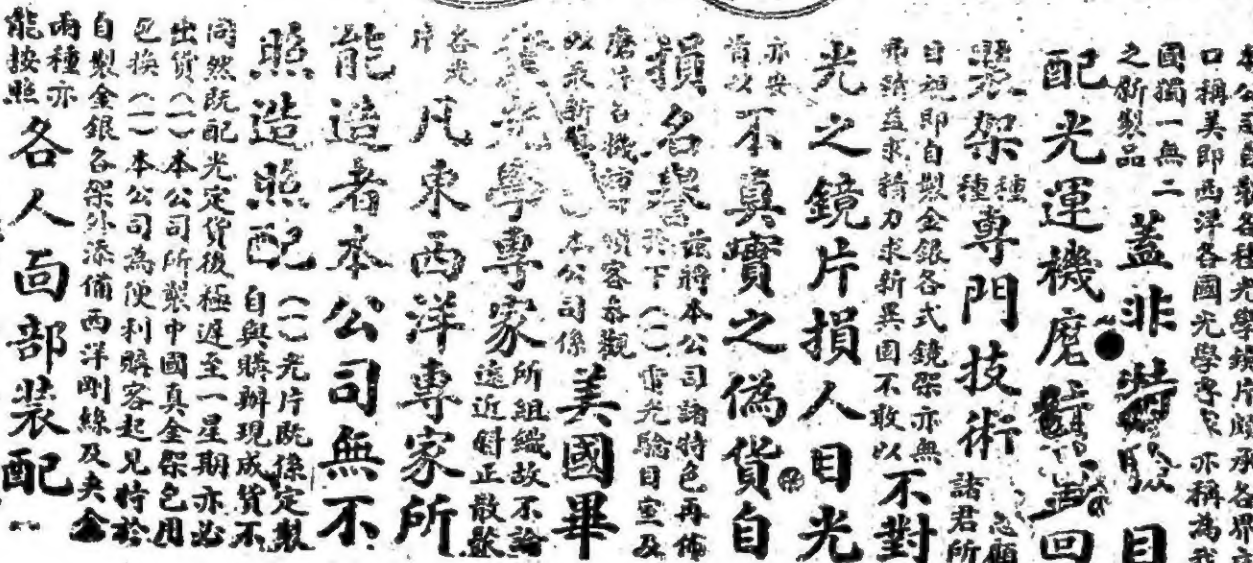 本公司自製各種光學鏡片頗承各界
口稱美即西洋各國光學專家亦稱為我
國獨一無二
之新製品
蓋非特驗目
配光運機磨
回
裝架
種種
專門技術
諸君所
目視即自製金銀各式鏡架亦無
弗精益求精力求新異固不敢以
不對
光之鏡片損人目光
亦安
肯以
不真實之偽貨自
損名譽
茲將本公司諸特色再佈
於下(一)電光驗目室及
磨片各機
顧客參觀
本公司係
美國畢
業光學專家
所組織故不論
遠近斜正散歛
各光
片
凡東西洋專家所
能造者本公司無不
照造照配
(一)光片既係定製
自與購辦現成貨不
同然既配光定貨後極遲至一星期亦必
出貨(一)本公司所製中國真金架包用
包換(一)本公司為便利購客起見特於
自製金銀各架外添備西洋剛絲及夾金
兩種亦
能按照
各人面部裝配